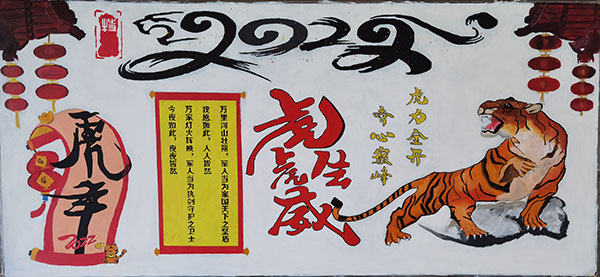 2022
虎年
2022
万里河山壮丽，军人当为家国天下之皇盾
我愿如此，人人皆然
万家灯火辉映，军人当为执剑守护之卫士
今夜如此，夜夜皆然
虎虎生威
虎力全开
心巅峰